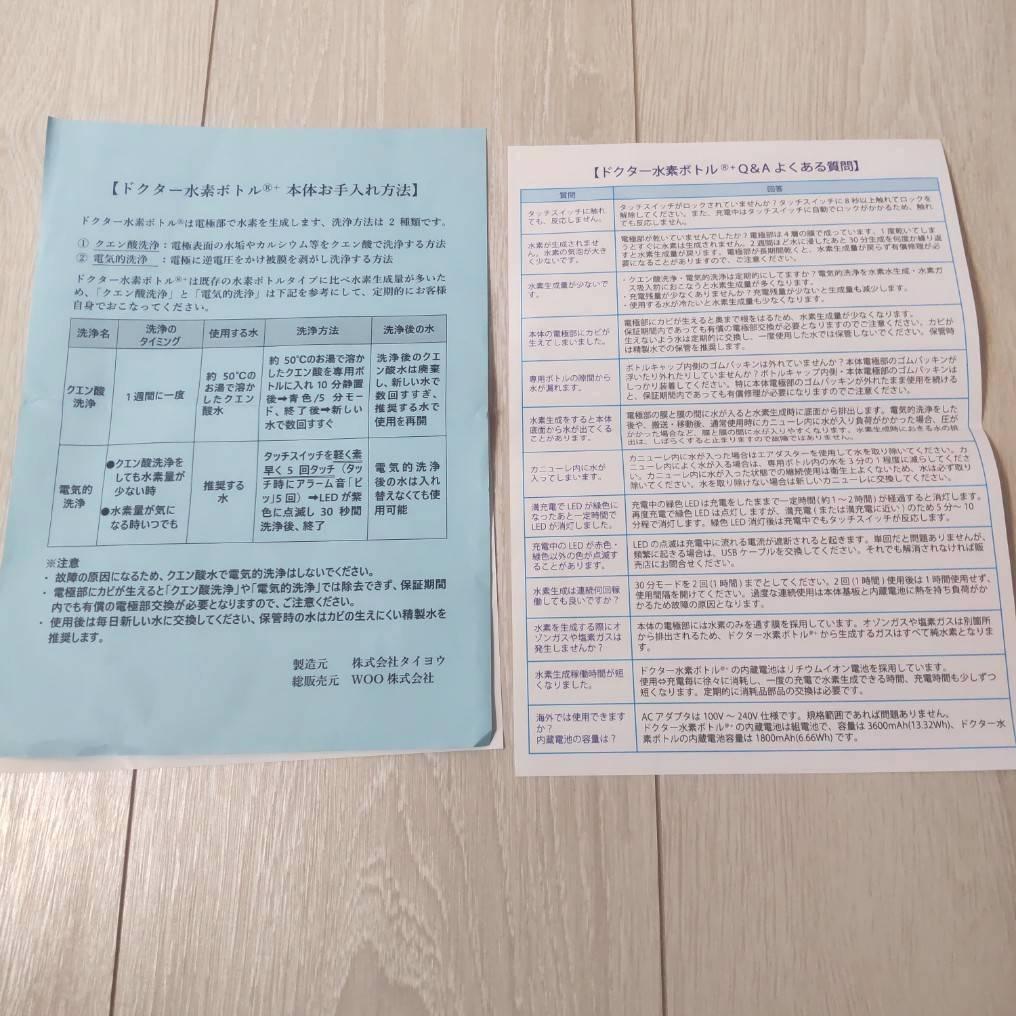 【ドクター水素ボトル®⁺ 本体お手入れ方法】
ドクター水素ボトル®は電極部で水素を生成します、洗浄方法は 2 種類です。
① クエン酸洗浄：電極表面の水垢やカルシウム等をクエン酸で洗浄する方法
② 電気的洗浄 ：電極に逆電圧をかけ被膜を剥がし洗浄する方法
ドクター水素ボトル®⁺は既存の水素ボトルタイプに比べ水素生成量が多いた
め、「クエン酸洗浄」と「電気的洗浄」は下記を参考にして、定期的にお客様
自身でおこなってください。
洗浄名
洗浄の
タイミング
使用する水
洗浄方法
洗浄後の水
クエン酸
洗浄
1 週間に一度
約 50℃の
お湯で溶か
したクエン
酸水
約 50℃のお湯で溶か
したクエン酸を専用ボ
トルに入れ 10 分静置
後➡青色/5 分モー
ド、終了後➡新しい
水で数回すすぐ
洗浄後のクエ
ン酸水は廃棄
し、新しい水で
数回すすぎ、
推奨する水で
使用を再開
電気的
洗浄
●クエン酸洗浄を
しても水素量が
少ない時
●水素量が気に
なる時いつでも
推奨する
水
タッチスイッチを軽く素
早く 5 回タッチ（タッ
チ時にアラーム音「ピ
ッ」5 回）➡LED が紫
色に点滅し 30 秒間
洗浄後、終了
電気的洗浄
後の水は入れ
替えなくても使
用可能
※注意
・ 故障の原因になるため、クエン酸水で電気的洗浄はしないでください。
・ 電極部にカビが生えると「クエン酸洗浄」や「電気的洗浄」では除去できず、保証期間
内でも有償の電極部交換が必要となりますので、ご注意ください。
・ 使用後は毎日新しい水に交換してください、保管時の水はカビの生えにくい精製水を
推奨します。
製造元 株式会社タイヨウ
総販売元 WOO 株式会社
【ドクター水素ボトル®⁺ Q&A よくある質問】
質問
回答
タッチスイッチに触れ
ても、反応しません。
タッチスイッチがロックされていませんか？タッチスイッチに 8 秒以上触れてロックを
解除してください。また、充電中はタッチスイッチに自動でロックがかかるため、触れ
ても反応しません。
水素が生成されませ
ん。水素の気泡が大き
く少ないです。
電極部が乾いていませんでしたか？電極部は 4 層の膜で成っています。1 度乾いてしま
うとすぐに水素は生成されません。2 週間ほど水に浸したあと 30 分生成を何度か繰り返
すと水素生成量が戻ります。電極部が長期間乾くと、水素生成量が戻らず有償修理が必
要になることがありますので、ご注意ください。
水素生成量が少ないで
す。
・クエン酸洗浄・電気的洗浄は定期的にしてますか？電気的洗浄を水素水生成・水素ガ
ス吸入前におこなうと水素生成量が多くなります。
・充電残量が少なくありませんか？充電残量が少ないと生成量も減少します。
・使用する水が冷たいと水素生成量も少なくなります。
本体の電極部にカビが
生えてしまいました。
電極部にカビが生えると奥まで根をはるため、水素生成量が少なくなります。
保証期間内であっても有償の電極部交換が必要となりますのでご注意ください。カビが
生えないよう水は定期的に交換し、一度使用した水では保管しないでください。保管時
は精製水での保管を推奨します。
専用ボトルの隙間から
水が漏れます。
ボトルキャップ内側のゴムパッキンは外れていませんか？本体電極部のゴムパッキンが
浮いたり外れたりしていませんか？ボトルキャップ内側・本体電極部のゴムパッキンは
しっかり装着してください。特に本体電極部のゴムパッキンが外れたまま使用を続ける
と、保証期間内であっても有償修理が必要になりますのでご注意ください。
水素生成をすると本体
底面から水が出てくる
ことがあります。
電極部の膜と膜の間に水が入ると水素生成時に底面から排出します。電気的洗浄をした
後や、搬送・移動後、通常使用時にカニューレ内に水が入り負荷がかかった場合、圧が
かかった場合など、膜と膜の間に水が入りやすくなります。水素生成時におきる水の排
出は、しばらくすると止まりますので故障ではありません。
カニューレ内に水が
入ってしまいます。
カニューレ内に水が入った場合はエアダスターを使用して水を取り除いてください。カ
ニューレ内によく水が入る場合は、専用ボトル内の水を 3 分の 1 程度に減らしてくださ
い。カニューレ内に水が入った状態での継続使用は衛生上よくないため、水は必ず取り
除いてください。水を取り除けない場合は新しいカニューレに交換してください。
満充電で LED が緑色に
なったあと一定時間で
LED が消灯しました。
充電中の緑色 LED は充電をしたままで一定時間（約 1～2 時間）が経過すると消灯します。
再度充電で緑色 LED は点灯しますが、満充電（または満充電に近い）のため 5 分～ 10
分程で消灯します。緑色 LED 消灯後は充電中でもタッチスイッチが反応します。
充電中の LED が赤色・
緑色以外の色が点滅す
ることがあります。
LED の点滅は充電中に流れる電流が遮断されると起きます。単回だと問題ありませんが、
頻繁に起きる場合は、USB ケーブルを交換してください。それでも解消されなければ販
売店にお問合せください。
水素生成は連続何回稼
働しても良いですか？
30 分モードを 2 回（1 時間）までとしてください。2 回（1 時間）使用後は 1 時間使用せず、
使用間隔を開けてください。過度な連続使用は本体基板と内蔵電池に熱を持ち負荷がか
かるため故障の原因となります。
水素を生成する際にオ
ゾンガスや塩素ガスは
発生しませんか？
本体の電極部には水素のみを通す膜を採用しています。オゾンガスや塩素ガスは別箇所
から排出されるため、ドクター水素ボトル®⁺から生成するガスはすべて純水素となりま
す。
水素生成稼働時間が短
くなりました。
ドクター水素ボトル®⁺ の内蔵電池はリチウムイオン電池を採用しています。
使用⇔充電毎に徐々に消耗し、一度の充電で水素生成できる時間、充電時間も少しずつ
短くなります。定期的に消耗品部品の交換は必要です。
海外では使用できます
か？
内蔵電池の容量は？
AC アダプタは 100V ～ 240V 仕様です。規格範囲であれば問題ありません。
ドクター水素ボトル®⁺ の内蔵電池は組電池で、容量は 3600mAh(13.32Wh)、ドクター水
素ボトルの内蔵電池容量は 1800mAh(6.66Wh) です。